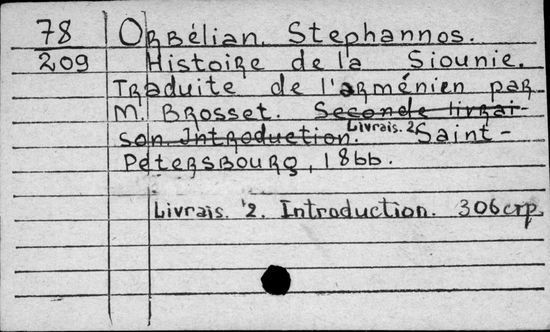 78 Orbélian, Stephannos.
209 Histoire de la Siounie.
Traduite de l'arménien par
M. Brosset. Seconde livrai-
son. Introduction. Livrais. 2. Saint-
Pétersbourg, 1866.
Livrais. 2. Introduction. 306 стр.